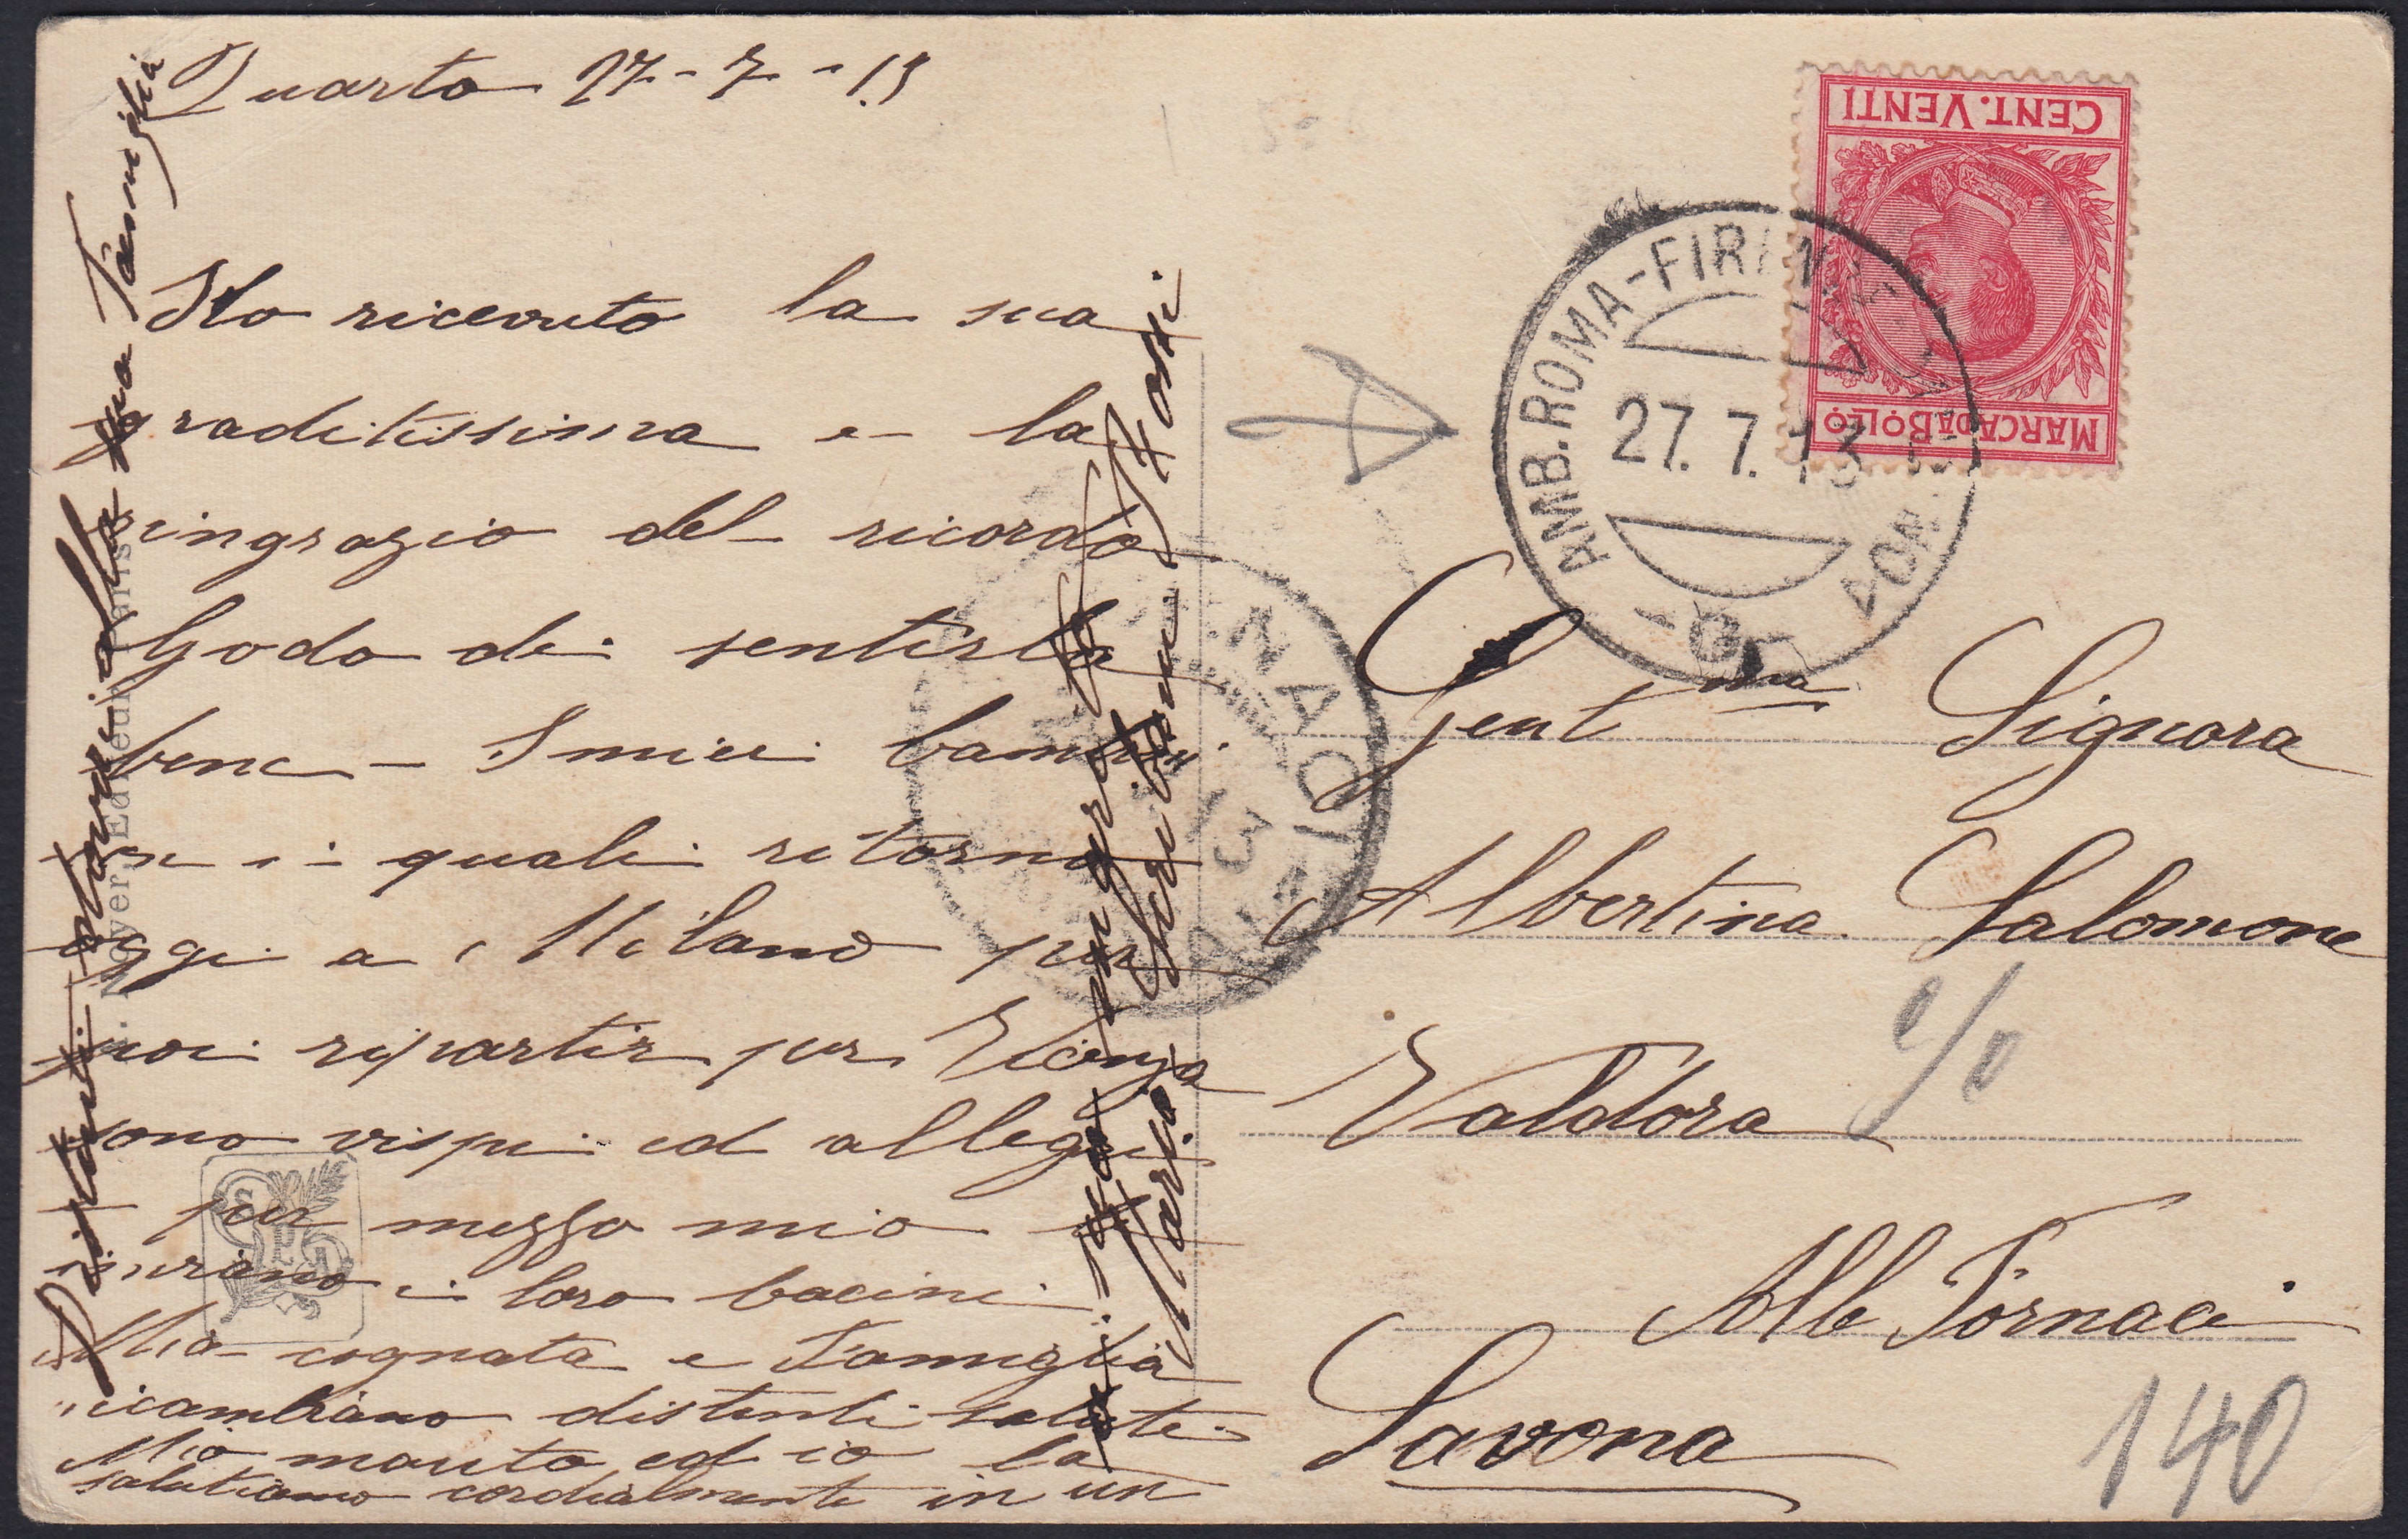 Quarto 27-7-13
Ho ricevuto la sua
graditissima e la
ringrazio del ricordo
Godo di sentirla
bene - I miei bambini
i quali ritorno
oggi a Milano per
poi ripartir per Vicenza
sono vispi ed allegri
e per mezzo mio
inviano i loro bacini
Mia cognata e Famiglia
ricambiano distinti saluti
Mio marito ed io la
salutiamo cordialmente in un
Maria
Distinti alla sua Famiglia
Meyer, Editeur Paris
CENT. VENTI
MARCA DA BOLLO
AMB. ROMA-FIRENZE
27. 7. 13
FORNACI
13
Gent.ma Signora
Albertina Salomone
c/o
Valdora
Alle Fornaci
Savona
140